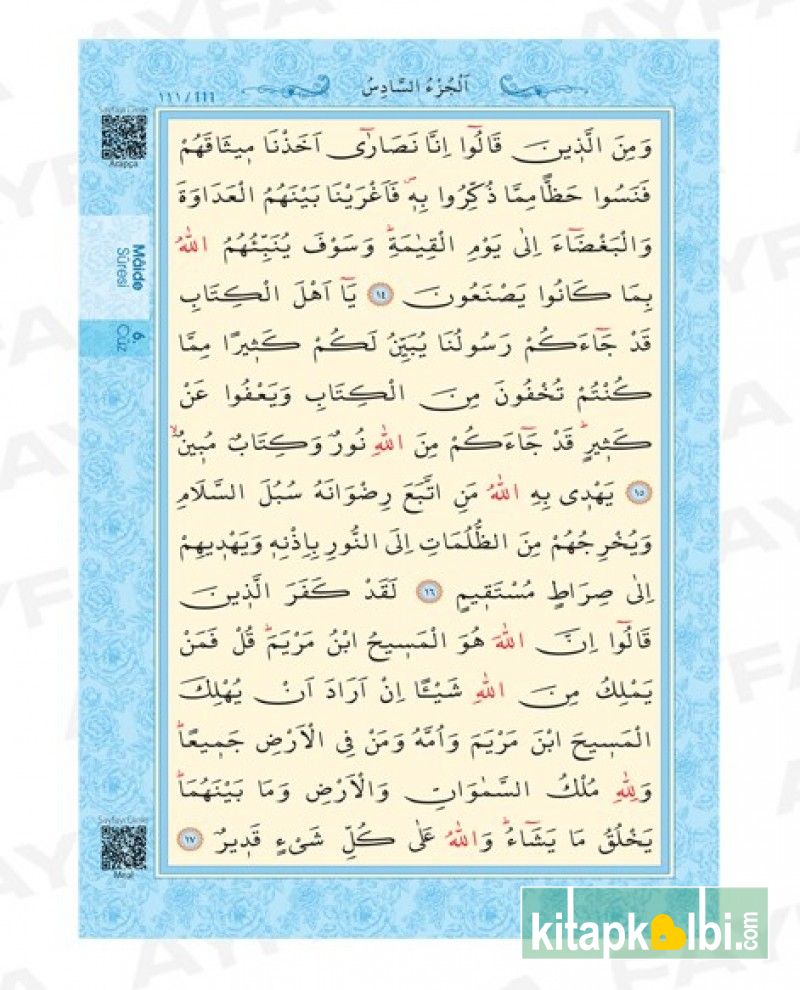 اَلْجُزْءُ السَّادِسُ
١١١ / 111
Sayfayı Dinle
Arapça
Mâide
Sûresi
6.
Cüz
وَمِنَ الَّذٖينَ قَالُٓوا اِنَّا نَصَارٰٓى اَخَذْنَا مٖيثَاقَهُمْ
فَنَسُوا حَظًّا مِمَّا ذُكِّرُوا بِهٖۖ فَاَغْرَيْنَا بَيْنَهُمُ الْعَدَاوَةَ
وَالْبَغْضَٓاءَ اِلٰى يَوْمِ الْقِيٰمَةِؕ وَسَوْفَ يُنَبِّئُهُمُ اللّٰهُ
بِمَا كَانُوا يَصْنَعُونَ ١٤ يَٓا اَهْلَ الْكِتَابِ
قَدْ جَٓاءَكُمْ رَسُولُنَا يُبَيِّنُ لَكُمْ كَثٖيرًا مِمَّا
كُنْتُمْ تُخْفُونَ مِنَ الْكِتَابِ وَيَعْفُوا عَنْ
كَثٖيرٍؕ قَدْ جَٓاءَكُمْ مِنَ اللّٰهِ نُورٌ وَكِتَابٌ مُبٖينٌۙ
١٥ يَهْدٖى بِهِ اللّٰهُ مَنِ اتَّبَعَ رِضْوَانَهُ سُبُلَ السَّلَامِ
وَيُخْرِجُهُمْ مِنَ الظُّلُمَاتِ اِلَى النُّورِ بِاِذْنِهٖ وَيَهْدٖيهِمْ
اِلٰى صِرَاطٍ مُسْتَقٖيمٍ ١٦ لَقَدْ كَفَرَ الَّذٖينَ
قَالُٓوا اِنَّ اللّٰهَ هُوَ الْمَسٖيحُ ابْنُ مَرْيَمَؕ قُلْ فَمَنْ
يَمْلِكُ مِنَ اللّٰهِ شَيْـًٔا اِنْ اَرَادَ اَنْ يُهْلِكَ
الْمَسٖيحَ ابْنَ مَرْيَمَ وَاُمَّهُ وَمَنْ فِى الْاَرْضِ جَمٖيعًاؕ
وَلِلّٰهِ مُلْكُ السَّمٰوَاتِ وَالْاَرْضِ وَمَا بَيْنَهُمَاؕ
يَخْلُقُ مَا يَشَٓاءُؕ وَاللّٰهُ عَلٰى كُلِّ شَیْءٍ قَدٖيرٌ ١٧
Sayfayı Dinle
Meal
kitapkalbi.com
AYFA